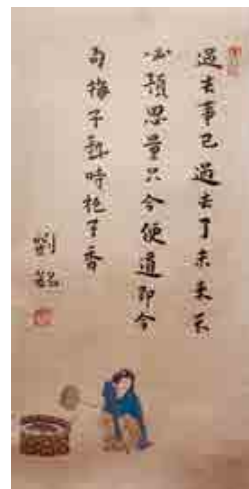 過去事已過去了未来不
必預思量只今便道即今
句梅子熟時栀子香
劉